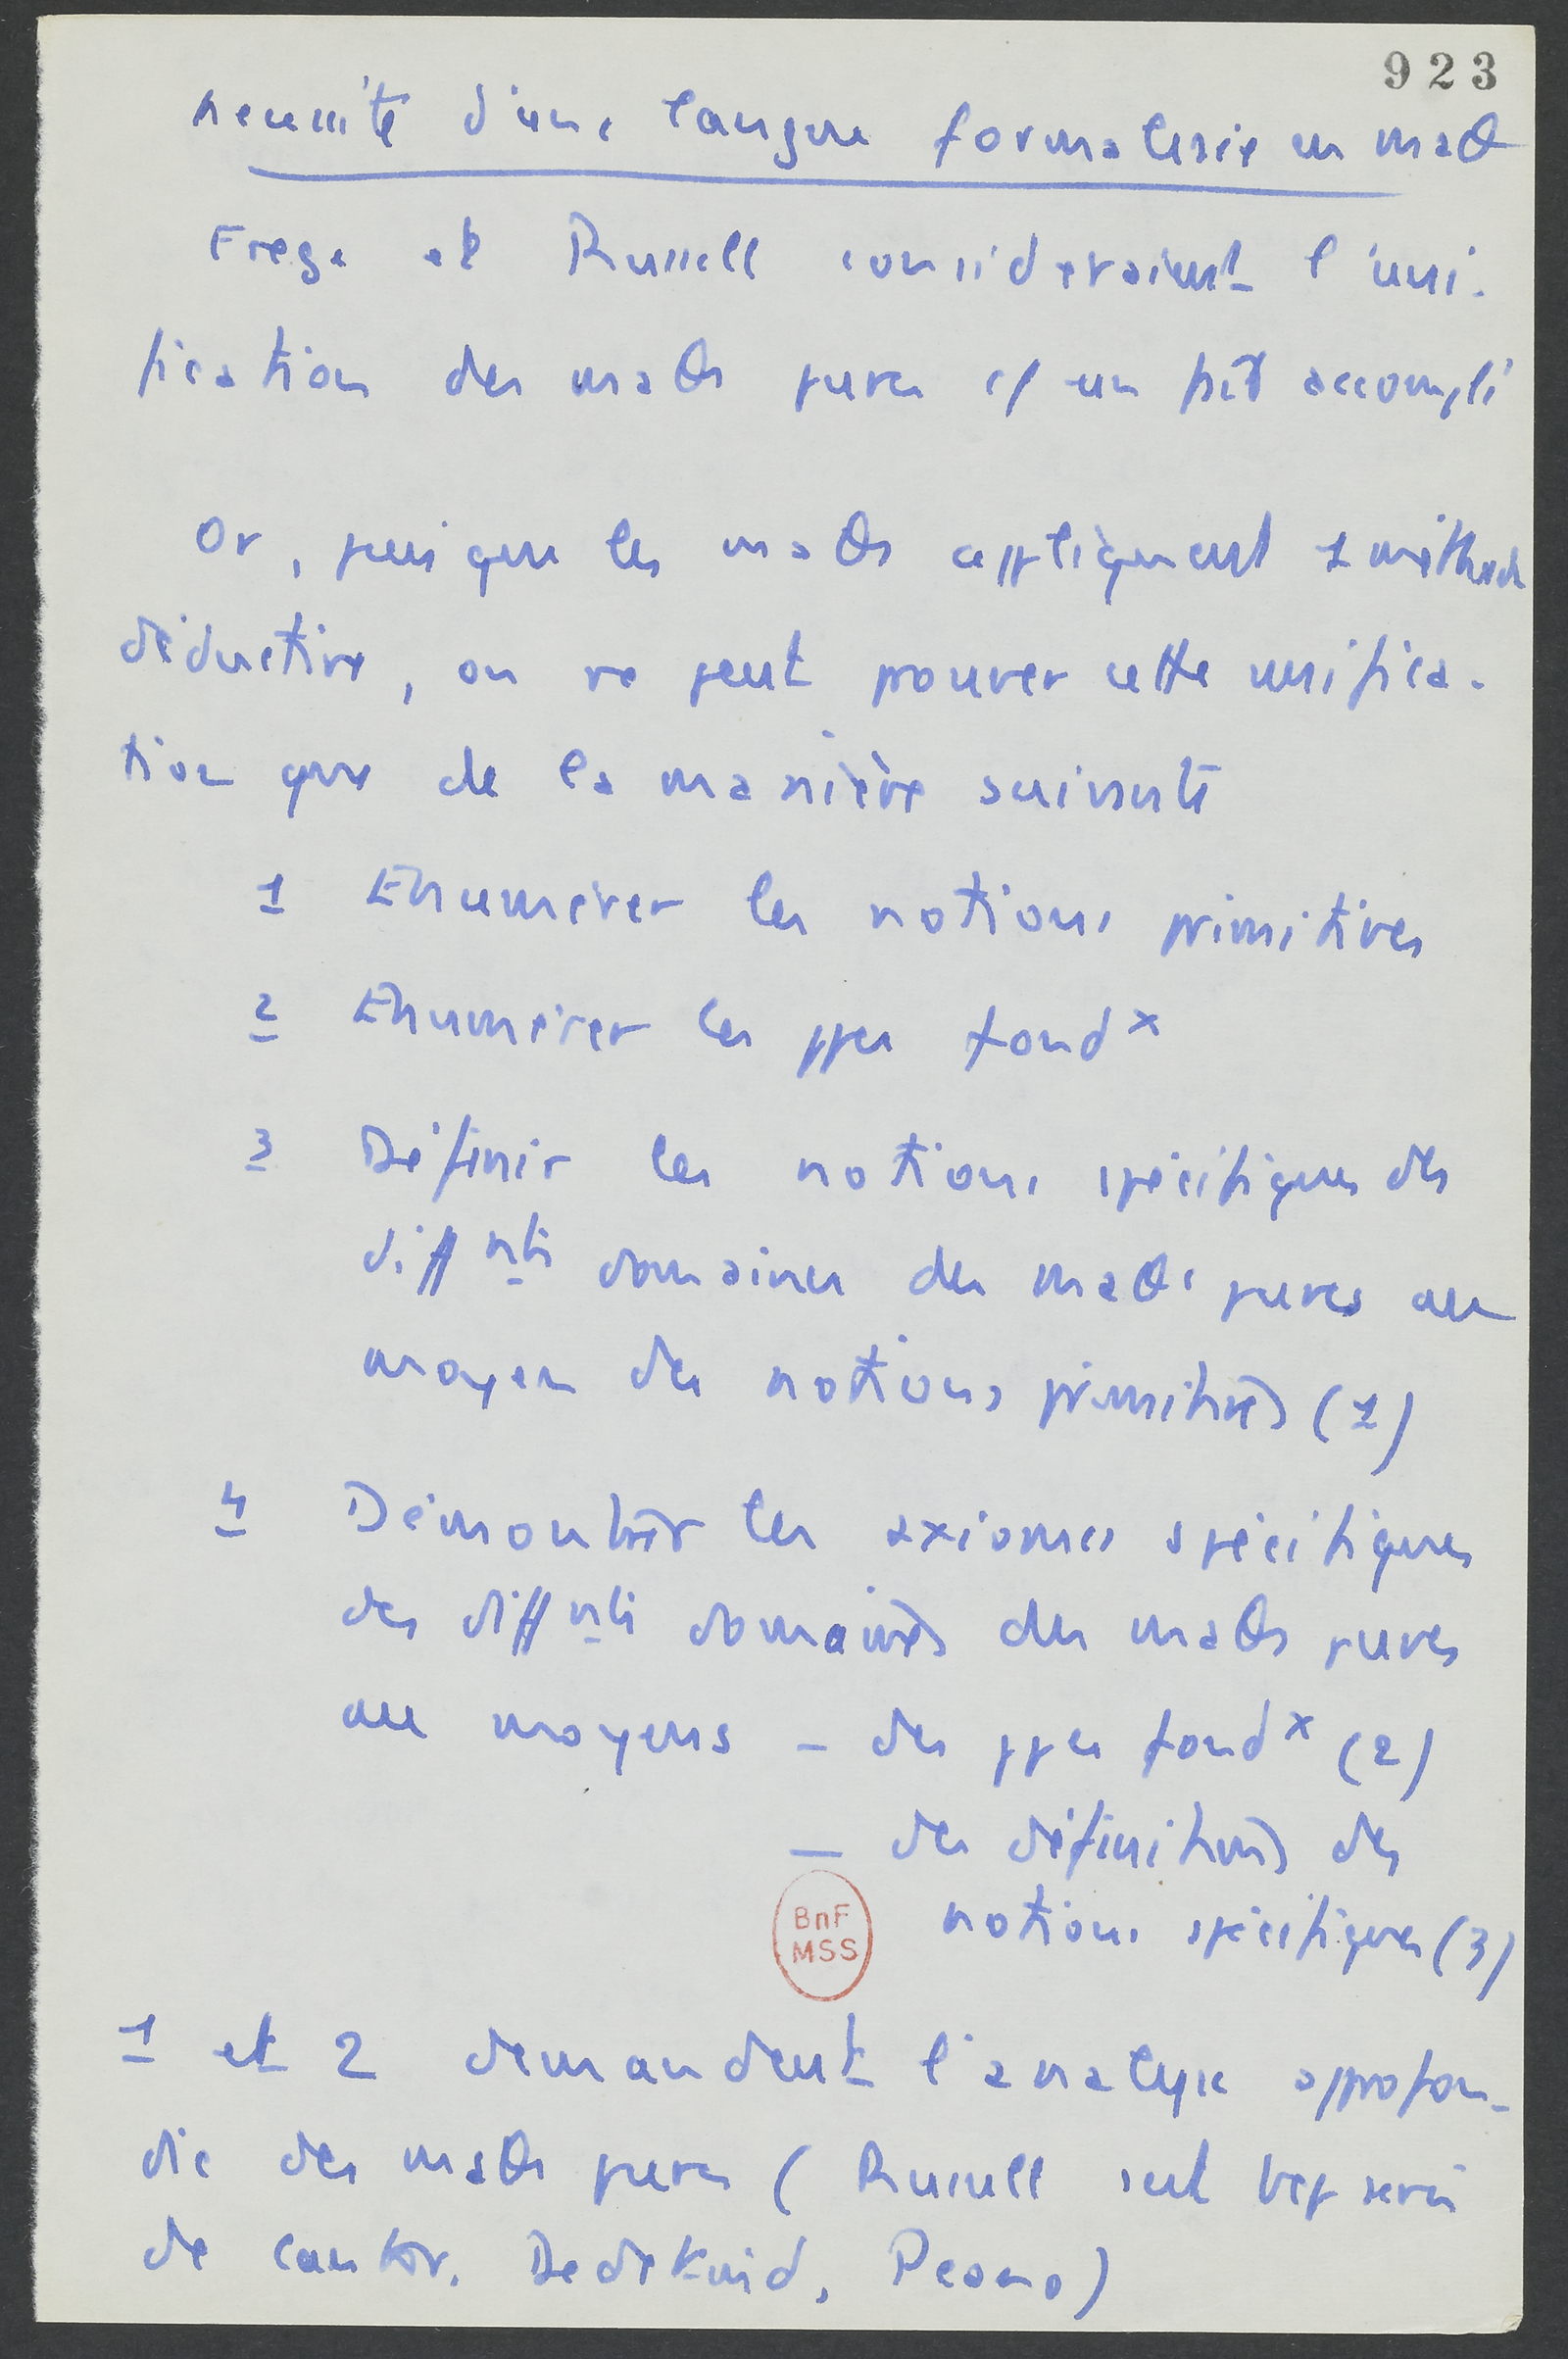 923
Necessité d'une langue formalisée en math
Frege et Russell consideraient l'uni-
fication des maths pures c/ un fait accompli
Or, puisque les maths appliquent 1 méthode
déductive, on ne peut prouver cette unifica-
tion que de la manière suivante
1 Enumérer les notions primitives
2 Enumérer les ppes fondx
3 Définir les notions spécifiques des
diffnts domaines des maths pures au
moyen des notions primitives (1)
4 Démontrer les axiomes spécifiques
des diffnts domaines des maths pures
au moyens – des ppes fondx (2)
— des définitions des
notions spécifiques (3)
BnF
MSS
1 et 2 demandent l'analyse approfon-
die des maths pures (Russell s'est
de Cantor, Dedekind, Peano)